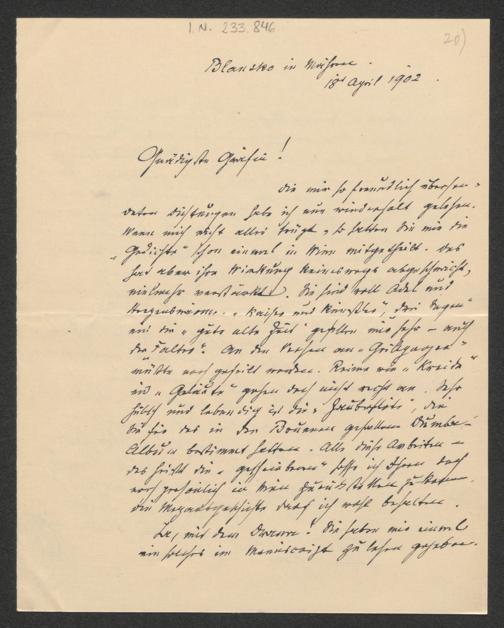 I. N. 233.846
20)
Blansko in Mähren.
18t April 1902.
Gnädigste Gräfin!
Die mir so freundlich übersen-
deten Dichtungen habe ich nun wiederholt gelesen.
Wenn mich nicht alles trügt, so hatten Sie mir die
"Gedichte" schon einmal in Wien mitgetheilt. Das
hat aber ihre Wirkung keineswegs abgeschwächt,
vielmehr verstärkt. Sie sind voll Adel und
"Kaiser und Künstler", "Der Degen"
und die "gute alte Zeit" gefallen mir sehr – auch
der "Falter". An den Versen an "Grillparzer"
müßte noch gefeilt werden. Reime wie "Kreide"
und "Geläute" gehen doch nicht recht an. Sehr
hübsch und lebendig ist die "Zauberflöte", die
Sie für das in den gefallene Dumba-
Album bestimmt hatten. Alle diese Arbeiten –
das heißt die hoffe ich Ihnen doch
noch persönlich in Wien zurückstellen zu können.
die darf ich wohl behalten.
Ja, mit dem Drama! Sie haben mir einmal
ein solches im Manuscript zu lesen gegeben.